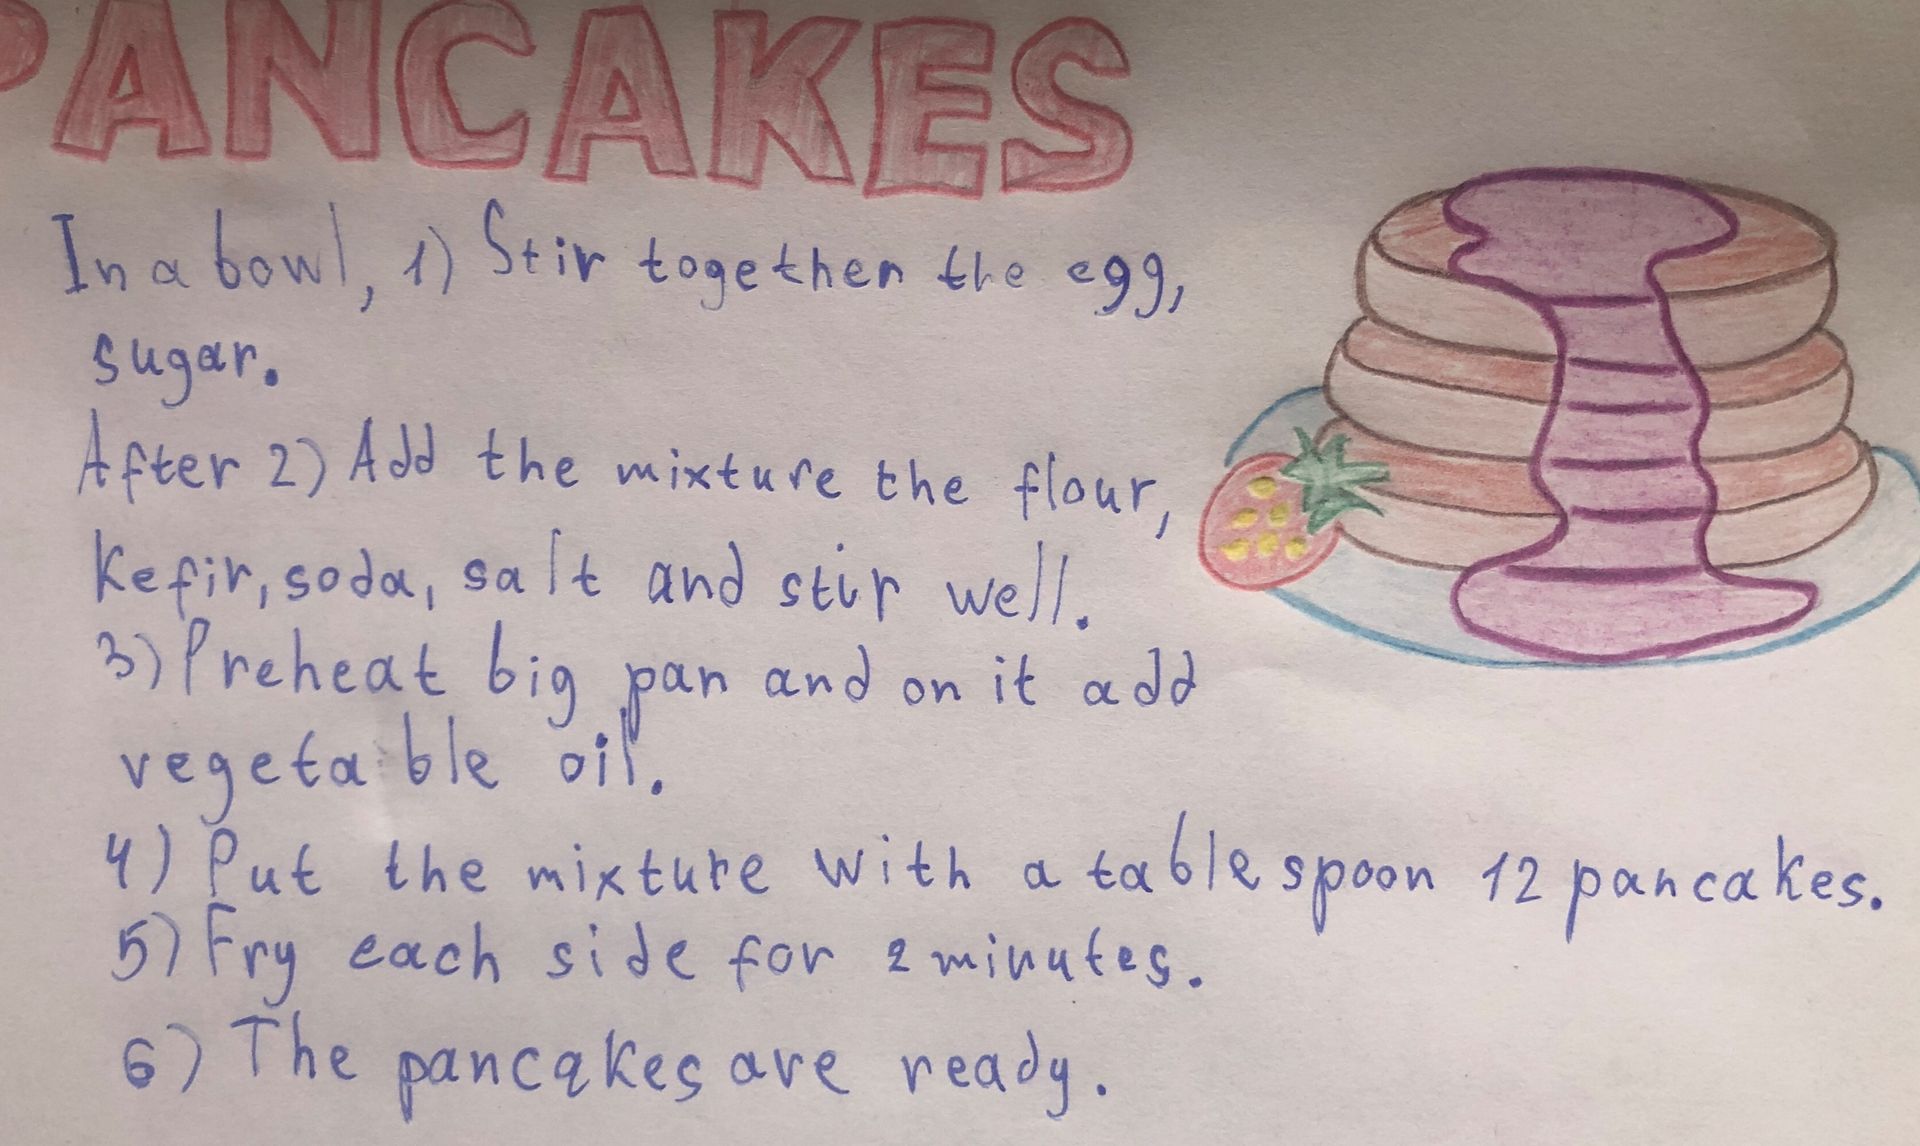 PANCAKES
In a bowl, 1) Stir together the egg,
sugar.
After 2) Add the mixture the flour,
Kefir, soda, salt and stir well.
3) Preheat big pan and on it add
vegetable oil.
4) Put the mixture with a tablespoon 12 pancakes.
5) Fry each side for 2 minutes.
6) The pancakes are ready.